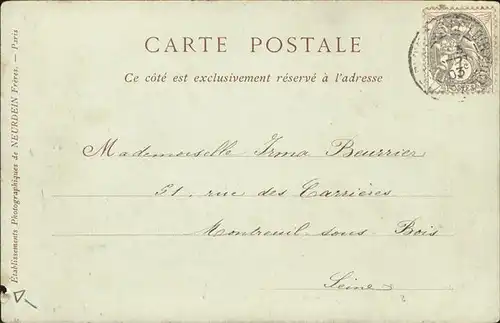 CARTE POSTALE
Ce côté est exclusivement réservé à l'adresse
Mademoiselle Irma Beurrier
51, rue des Carrières
Montreuil-sous-Bois
Seine
Etablissements Photographiques de NEURDEIN Frères. — Paris